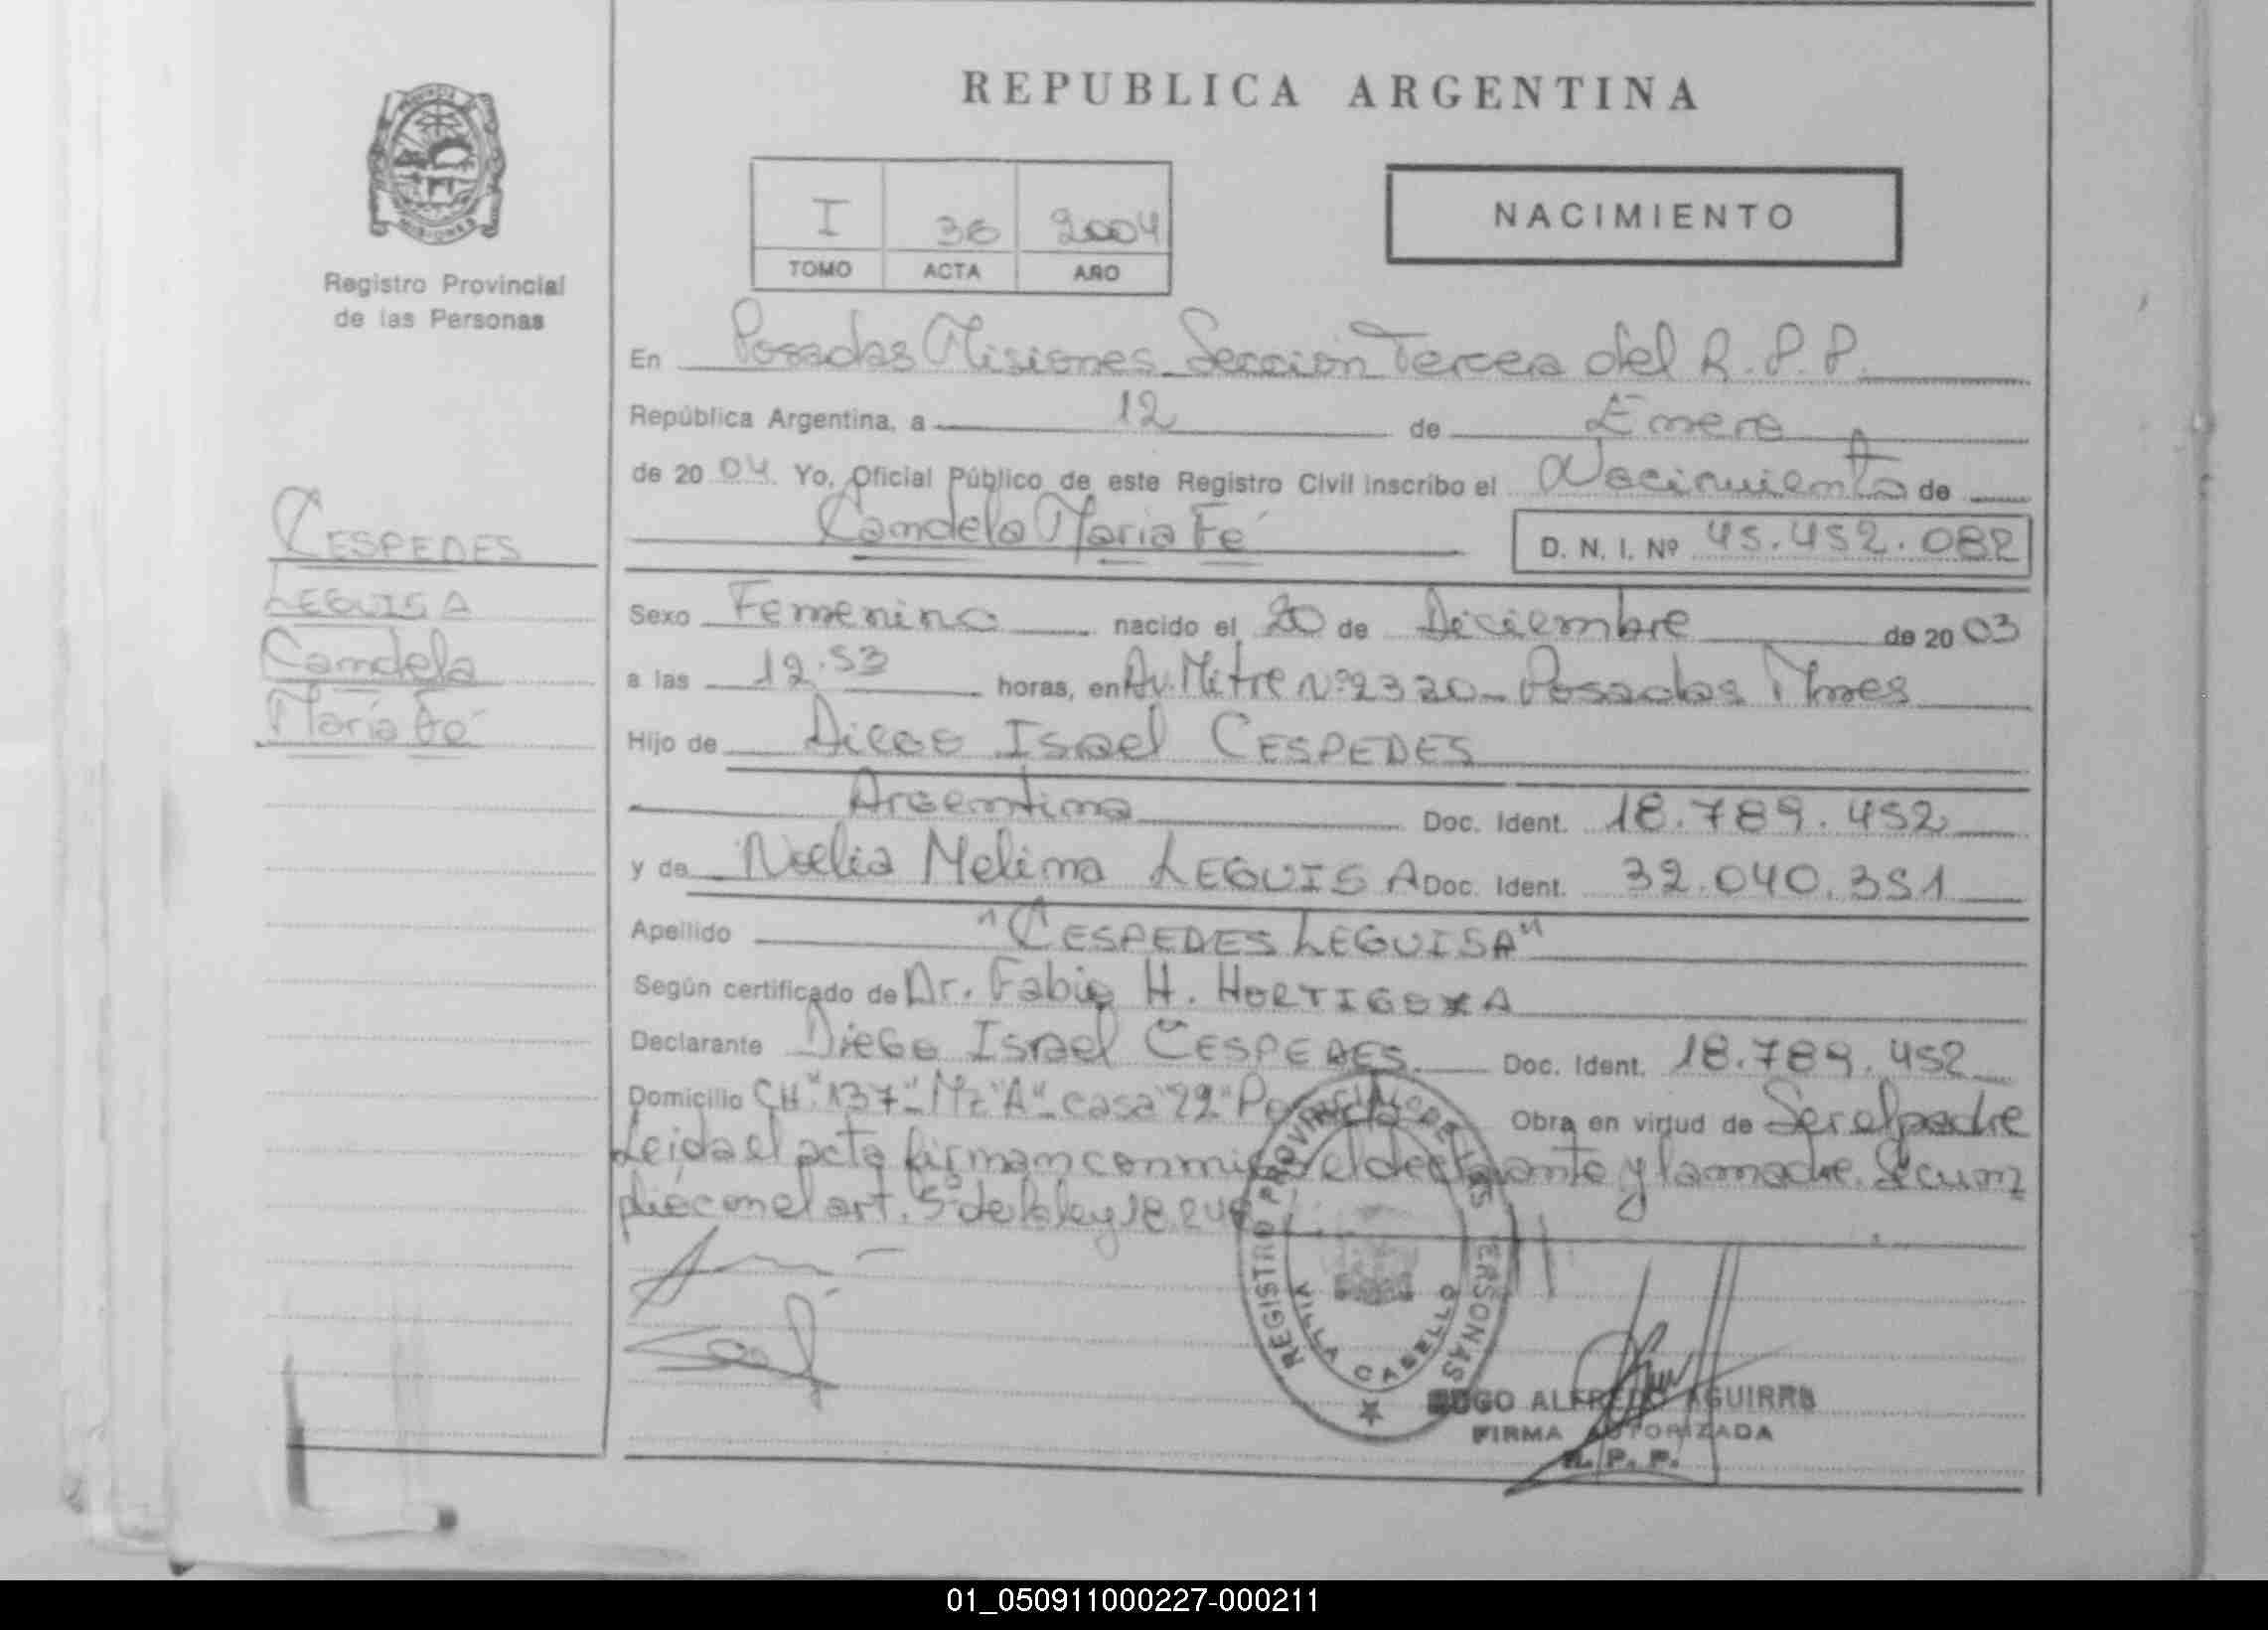 REPUBLICA ARGENTINA
I 36 2004
TOMO ACTA AÑO
NACIMIENTO
MISIONES
Registro Provincial
de las Personas
CESPEDES
LEGUISA
Candela
María Fé
En Posadas Misiones Sección Tercera del R.P.P.
República Argentina, a 12 de Enero
de 2004 Yo, Oficial Público de este Registro Civil inscribo el Nacimiento de
Candela María Fé D. N. I. Nº 45.452.082
Sexo Femenino nacido el 20 de Diciembre de 2003
a las 12.53 horas, en Av. Mitre Nº 2320 - Posadas Mnes
Hijo de Diego Israel CESPEDES
Argentina Doc. Ident. 18.789.452
y de Noelia Melina LEGUISA Doc. Ident. 32.040.351
Apellido "CESPEDES LEGUISA"
Según certificado de Dr. Fabio H. HORTIGOZA
Declarante Diego Israel CESPEDES Doc. Ident. 18.789.452
Domicilio CH "137" Mz "A" casa "22" Obra en virtud de Ser el padre
Leida el acta firman conmigo el declarante y la madre. Se cum
plió con el art. 5º de la ley 18.248
REGISTRO PROVINCIAL DE LAS PERSONAS
VILLA CABELLO
HUGO ALFREDO AGUIRRE
FIRMA AUTORIZADA
R. P. P.
01_050911000227-000211